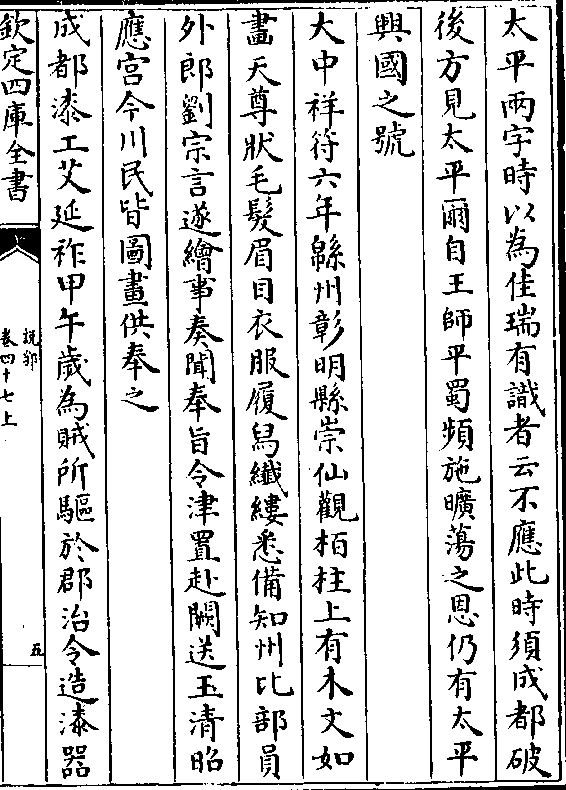 太平兩字時以為佳瑞有識者云不應此時須成都破
後方見太平爾自王師平蜀頻施曠蕩之恩仍有太平
興國之號
大中祥符六年緜州彰明縣崇仙觀栢柱上有木文如
畫天尊狀毛髮眉目衣服履舄纖縷悉備知州比部員
外郎劉宗言遂繪事奏聞奉旨令津置赴闕送玉清昭
應宮今川民皆圖畫供奉之
成都漆工艾延祚甲午歲為賊所驅於郡治令造漆器
欽定四庫全書
說郛
卷四十七上
五